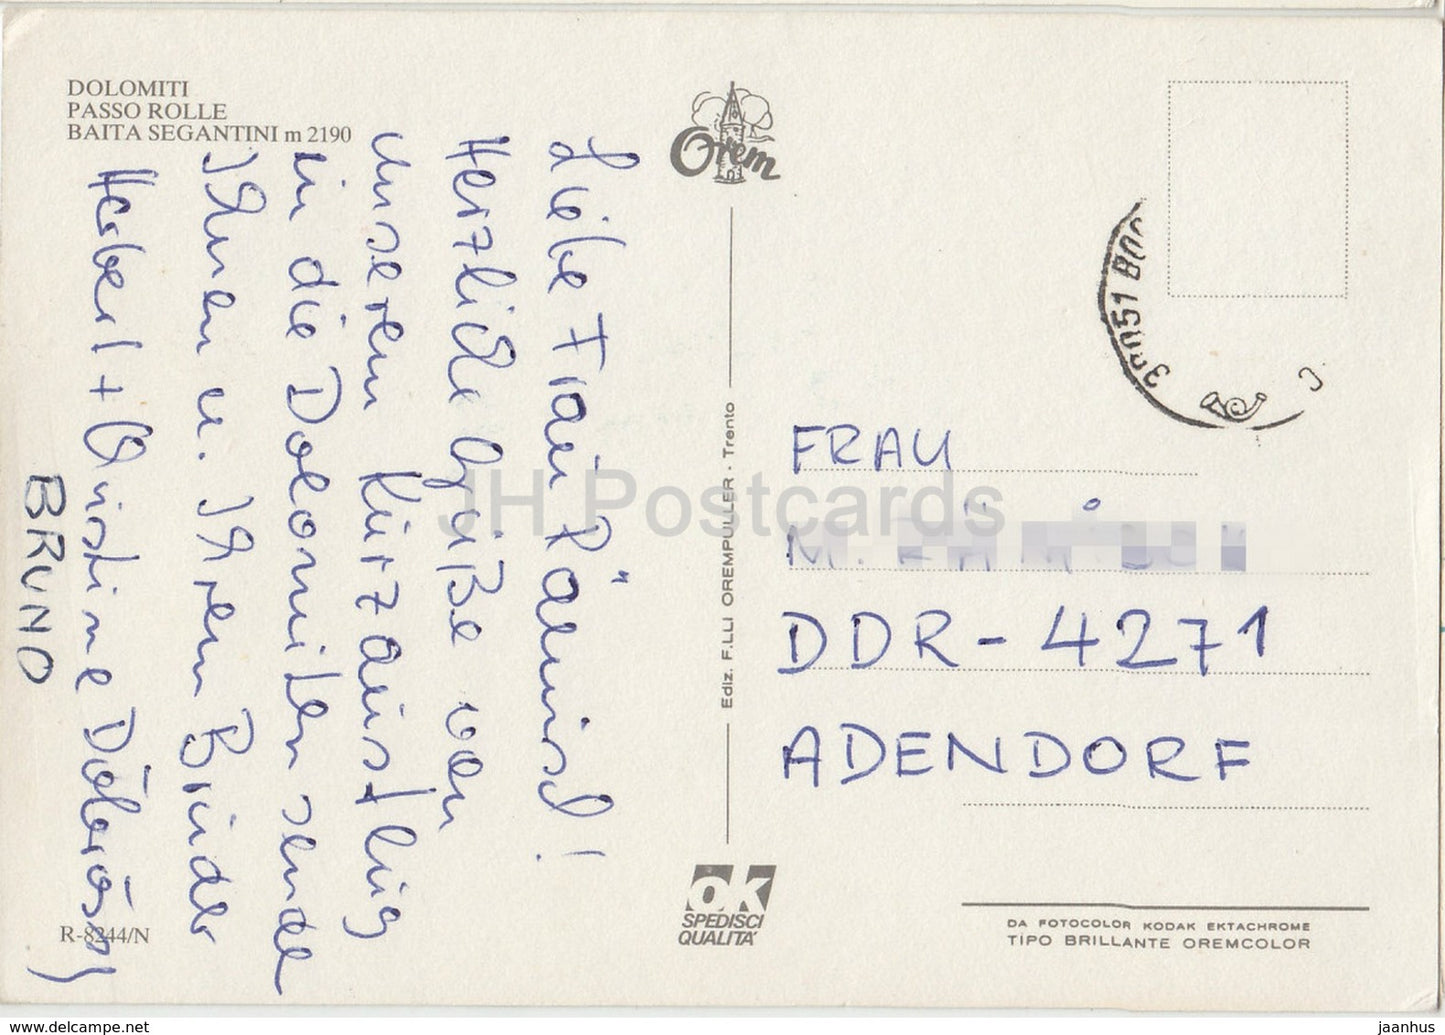 DOLOMITI
PASSO ROLLE
BAITA SEGANTINI m 2190
Liebe Frau
Herzliche Grüße von
unserem Kurzausflug
in die Dolomiten sende
Ihnen u. Ihrem Bruder
Herbert + Christine
BRUNO
R-8244/N
Orem
Ediz. F.LLI OREMPULLER - Trento
OK
SPEDISCI
QUALITA'
38051 BOR
FRAU
M.
DDR-4271
ADENDORF
DA FOTOCOLOR KODAK EKTACHROME
TIPO BRILLANTE OREMCOLOR
JH Postcards
www.delcampe.net
jaanhus